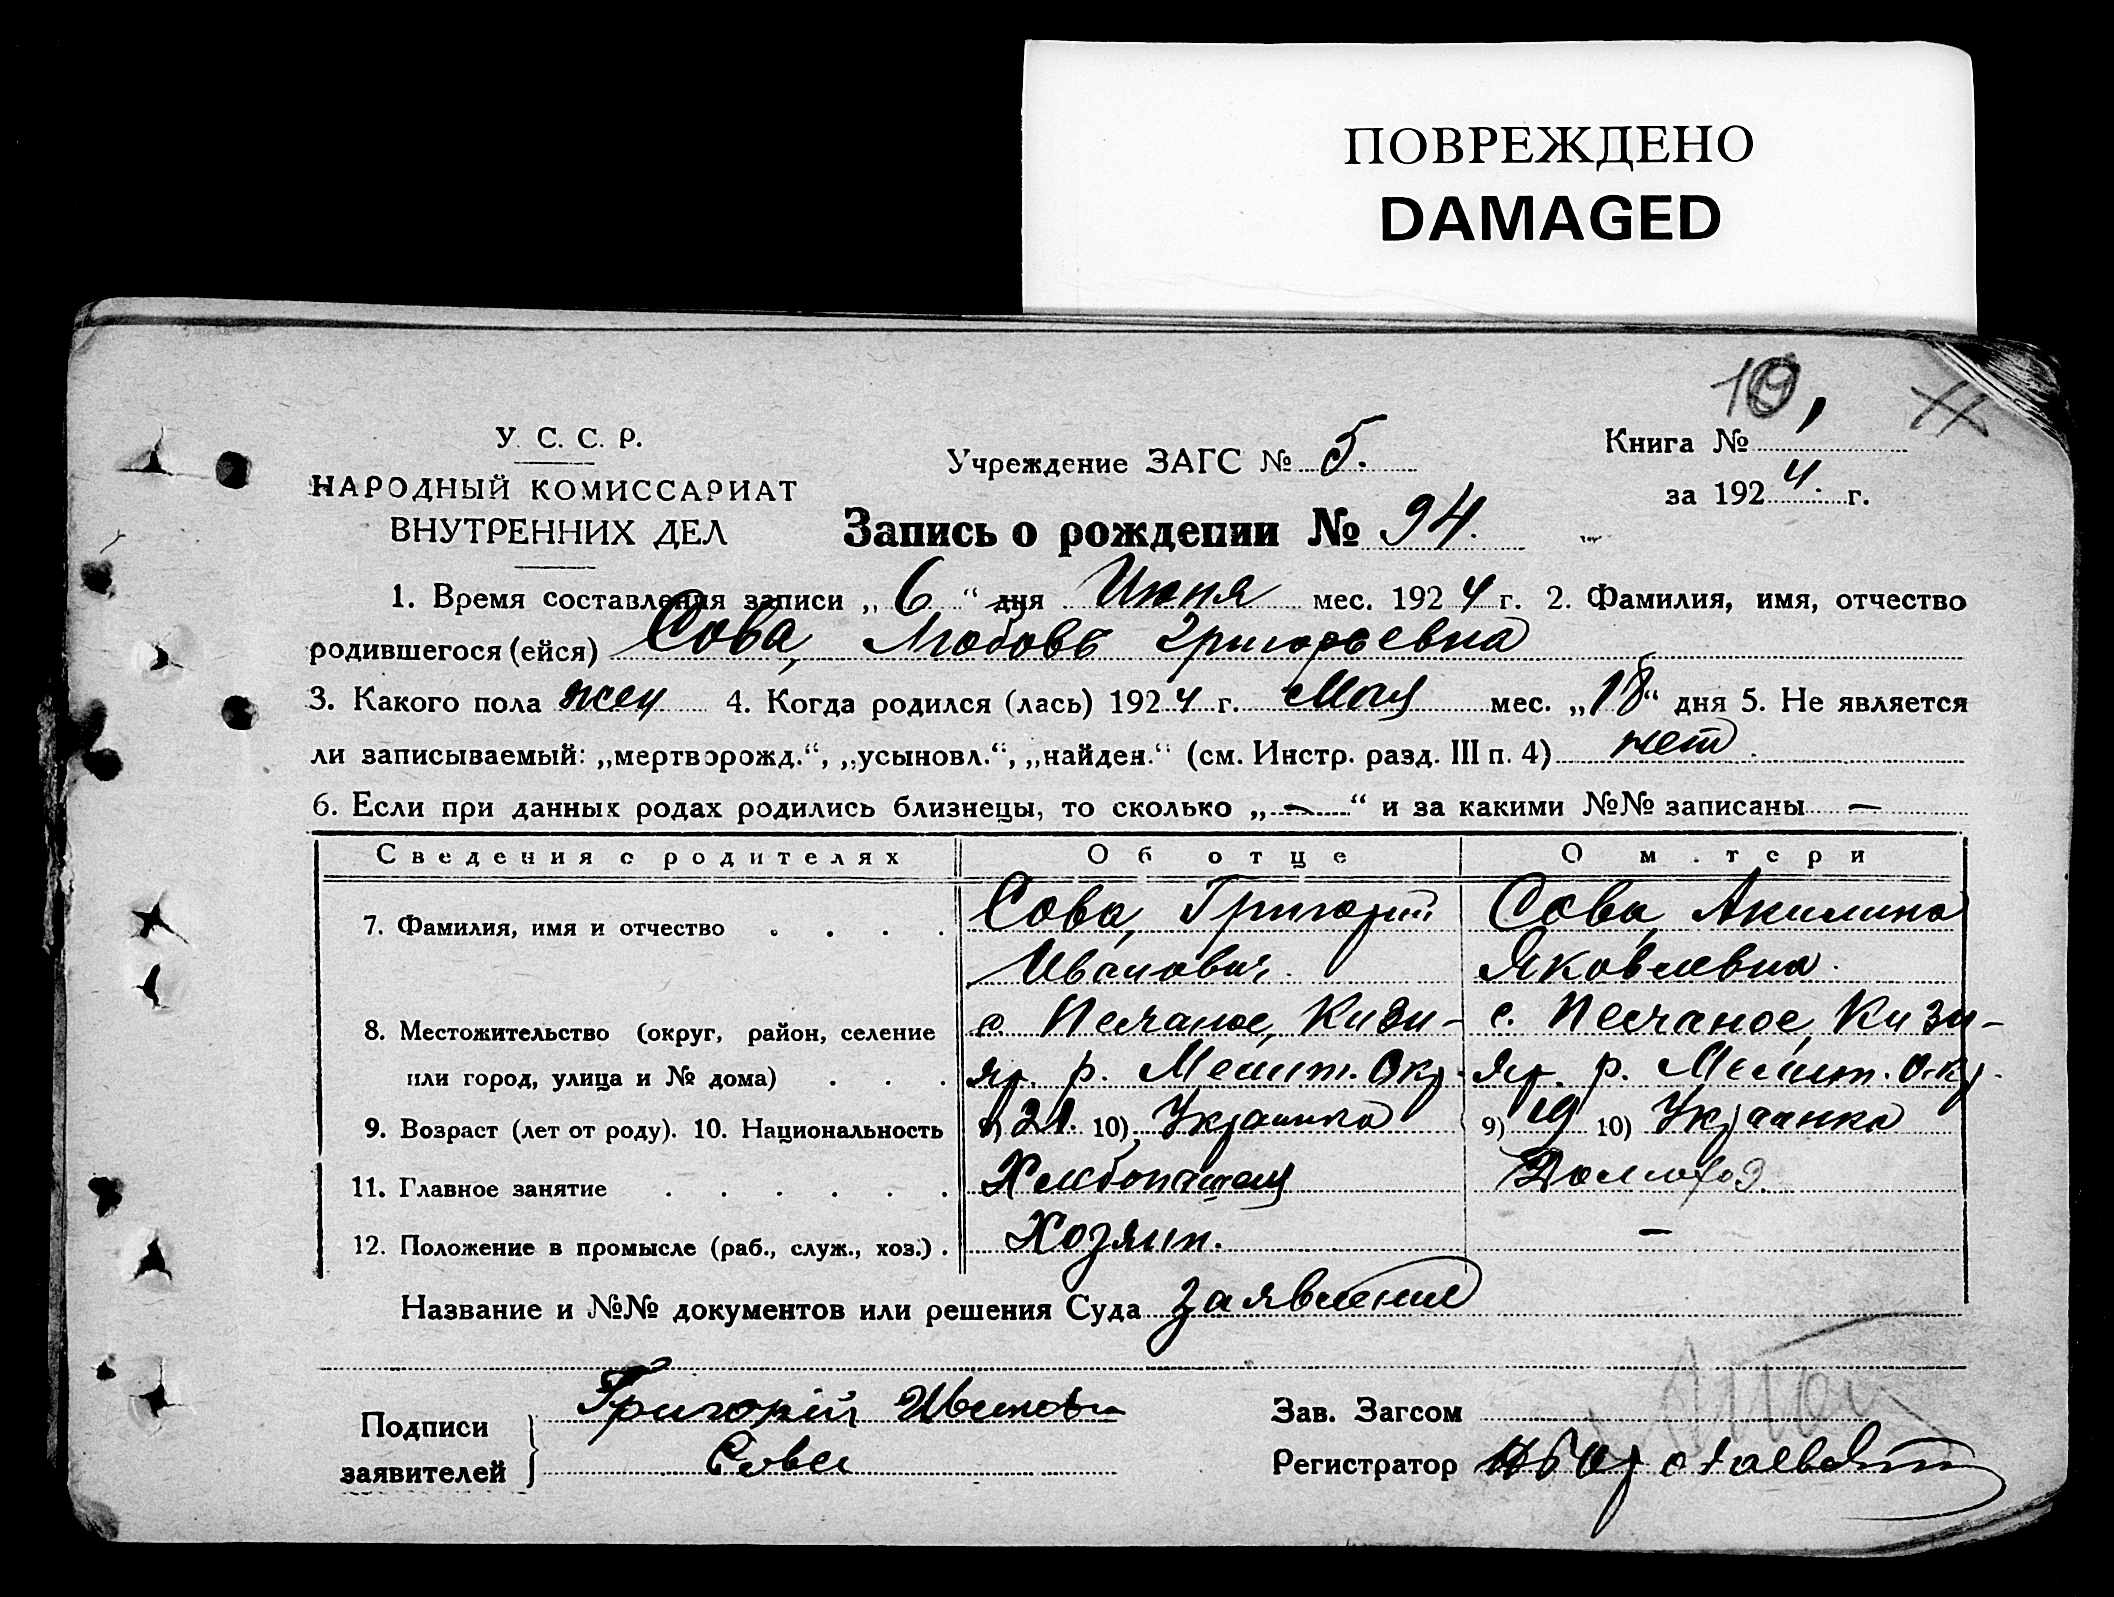 ПОВРЕЖДЕНО
DAMAGED
10,
У. С. С. Р.
НАРОДНЫЙ КОМИССАРИАТ
ВНУТРЕННИХ ДЕЛ
Учреждение ЗАГС № 5.
Книга №
за 1924 г.
Запись о рождении № 94.
1. Время составления записи „6“ дня Июня мес. 1924 г. 2. Фамилия, имя, отчество
родившегося (ейся) Сова, Любовь Григорьевна
3. Какого пола жен 4. Когда родился (лась) 1924 г. Мая мес. „18“ дня 5. Не является
ли записываемый: „мертворожд.“, „усыновл.“, „найден.“ (см. Инстр. разд. III п. 4) нет.
6. Если при данных родах родились близнецы, то сколько „—“ и за какими №№ записаны —
Сведения о родителях Об отце О матери
7. Фамилия, имя и отчество . . . . Сова, Григорий Сова, Акилина
Иванович. Яковлевна.
8. Местожительство (округ, район, селение с. Песчаное, Кизи- с. Песчаное, Кизи-
или город, улица и № дома) . . . яр. р. Мелит. Окр. яр. р. Мелит. Окр.
9. Возраст (лет от роду). 10. Национальность 9) 21. 10) Украинка 9) 19 10) Украинка
11. Главное занятие . . . . . . Хлебопашец Домохоз.
12. Положение в промысле (раб., служ., хоз.) . Хозяин. —
Название и №№ документов или решения Суда заявление
Подписи
заявителей
Григорий Иванови
Сова
Зав. Загсом
Регистратор